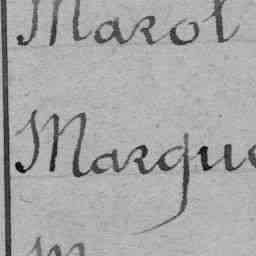 Marol
Marque